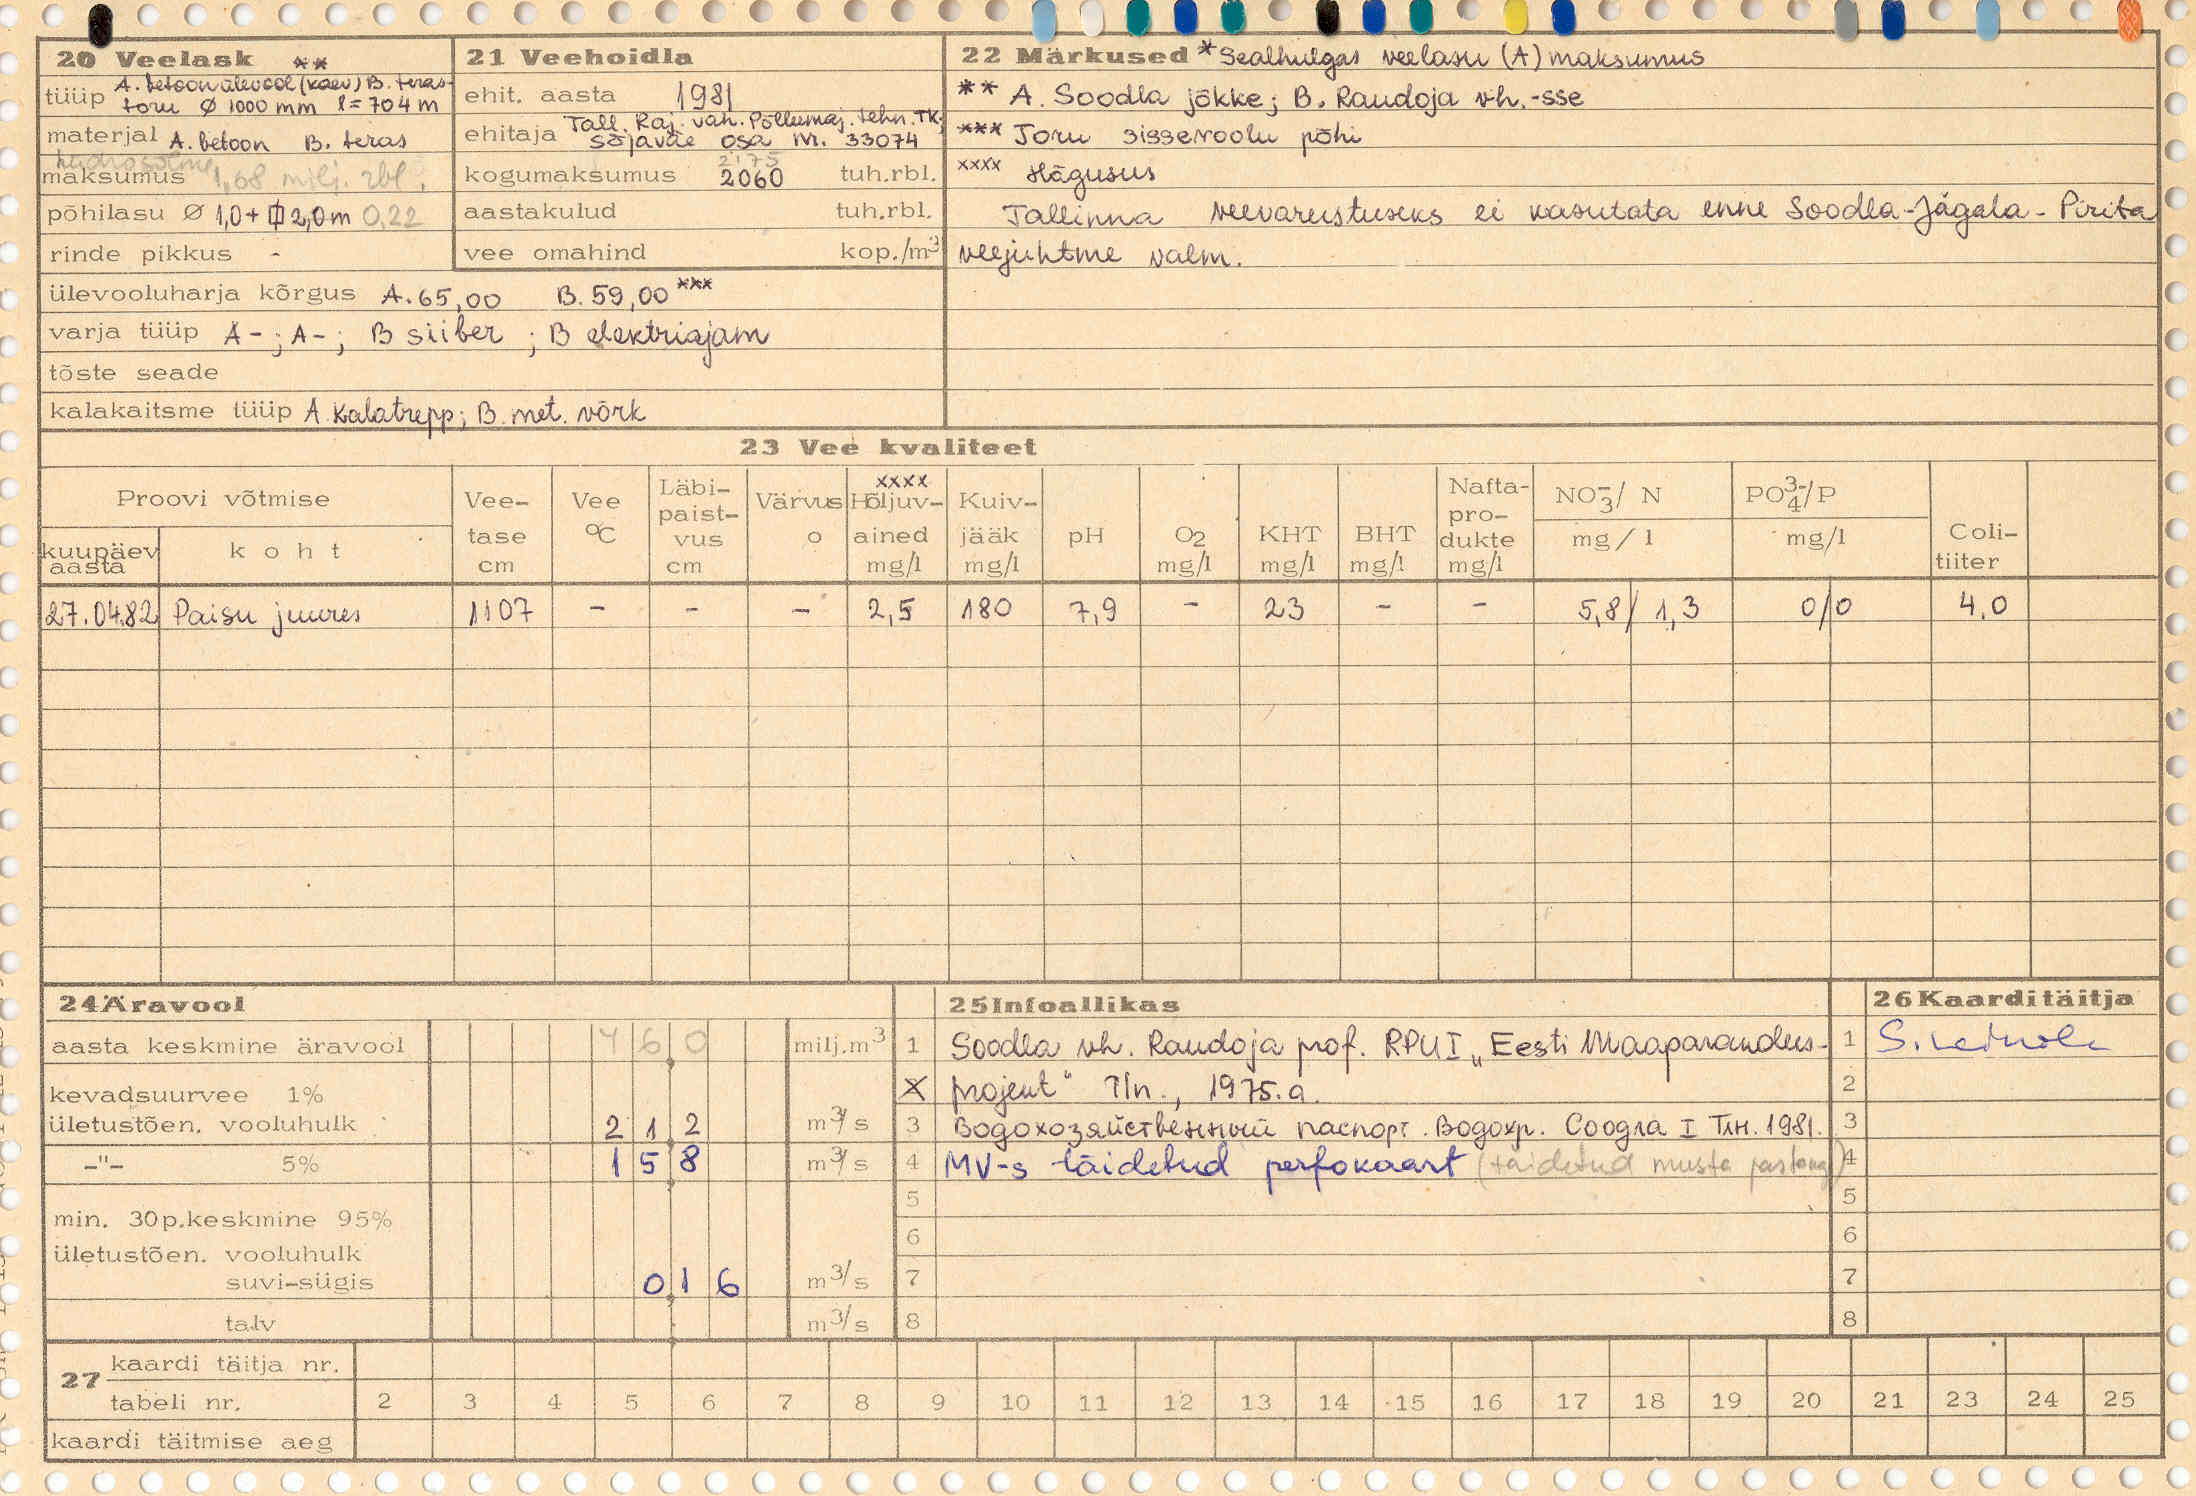 20 Veelask **
tüüp A. betoonülevool (kaev) B. teras-
toru Ø 1000 mm l = 704 m
materjal A. betoon B. teras
hüdrosõlme
maksumus 1,68 milj. rbl.
põhilasu Ø 1,0 + 2,0 m 0,22
rinde pikkus -
ülevooluharja kõrgus A. 65,00 B. 59,00 ***
varja tüüp A - ; A - ; B siiber ; B elektriajam
tõste seade
kalakaitsme tüüp A. kalatrepp; B. met. võrk
21 Veehoidla
ehit. aasta 1981
ehitaja Tall. Raj. vah. Põllumaj. tehn. TK;
Sõjaväe osa nr. 33074
2175
kogumaksumus 2060 tuh.rbl.
aastakulud tuh.rbl.
vee omahind kop./m³
22 Märkused * Sealhulgas veelasu (A) maksumus
** A. Soodla jõkke; B. Raudoja vh.-sse
*** Toru sissevoolu põhi
xxxx Hägusus
Tallinna veevarustuseks ei kasutata enne Soodla-Jägala-Pirita
veejuhtme valm.
23 Vee kvaliteet
Proovi võtmise
kuupäev aasta
koht
Vee-tase cm
Vee °C
Läbi-paist-vus cm
Värvus o
xxxx
Hõljuv-ained mg/l
Kuiv-jääk mg/l
pH
O2 mg/l
KHT mg/l
BHT mg/l
Nafta-pro-dukte mg/l
NO3-/ N mg/l
PO4 3-/P mg/l
Coli-tiiter
27.04.82 Paisu juures 1107 - - - 2,5 180 7,9 - 23 - - 5,8/ 1,3 0/0 4,0
24 Äravool
aasta keskmine äravool 46,0 milj.m³
kevadsuurvee 1%
ületustõen. vooluhulk 21,2 m³/s
-"- 5% 15,8 m³/s
min. 30p.keskmine 95%
ületustõen. vooluhulk
suvi-sügis 0,16 m³/s
talv m³/s
25 Infoallikas
1 Soodla vh. Raudoja prof. RPUI „Eesti Maaparandus-
x projekt" Tln., 1975.a.
3 Водохозяйственный паспорт. Водохр. Соодла I Тлн. 1981.
4 MV-s täidetud perfokaart (täidetud musta pastaga)
5
6
7
8
26 Kaarditäitja
1
2
3
4
5
6
7
8
27 kaardi täitja nr.
tabeli nr. 2 3 4 5 6 7 8 9 10 11 12 13 14 15 16 17 18 19 20 21 23 24 25
kaardi täitmise aeg